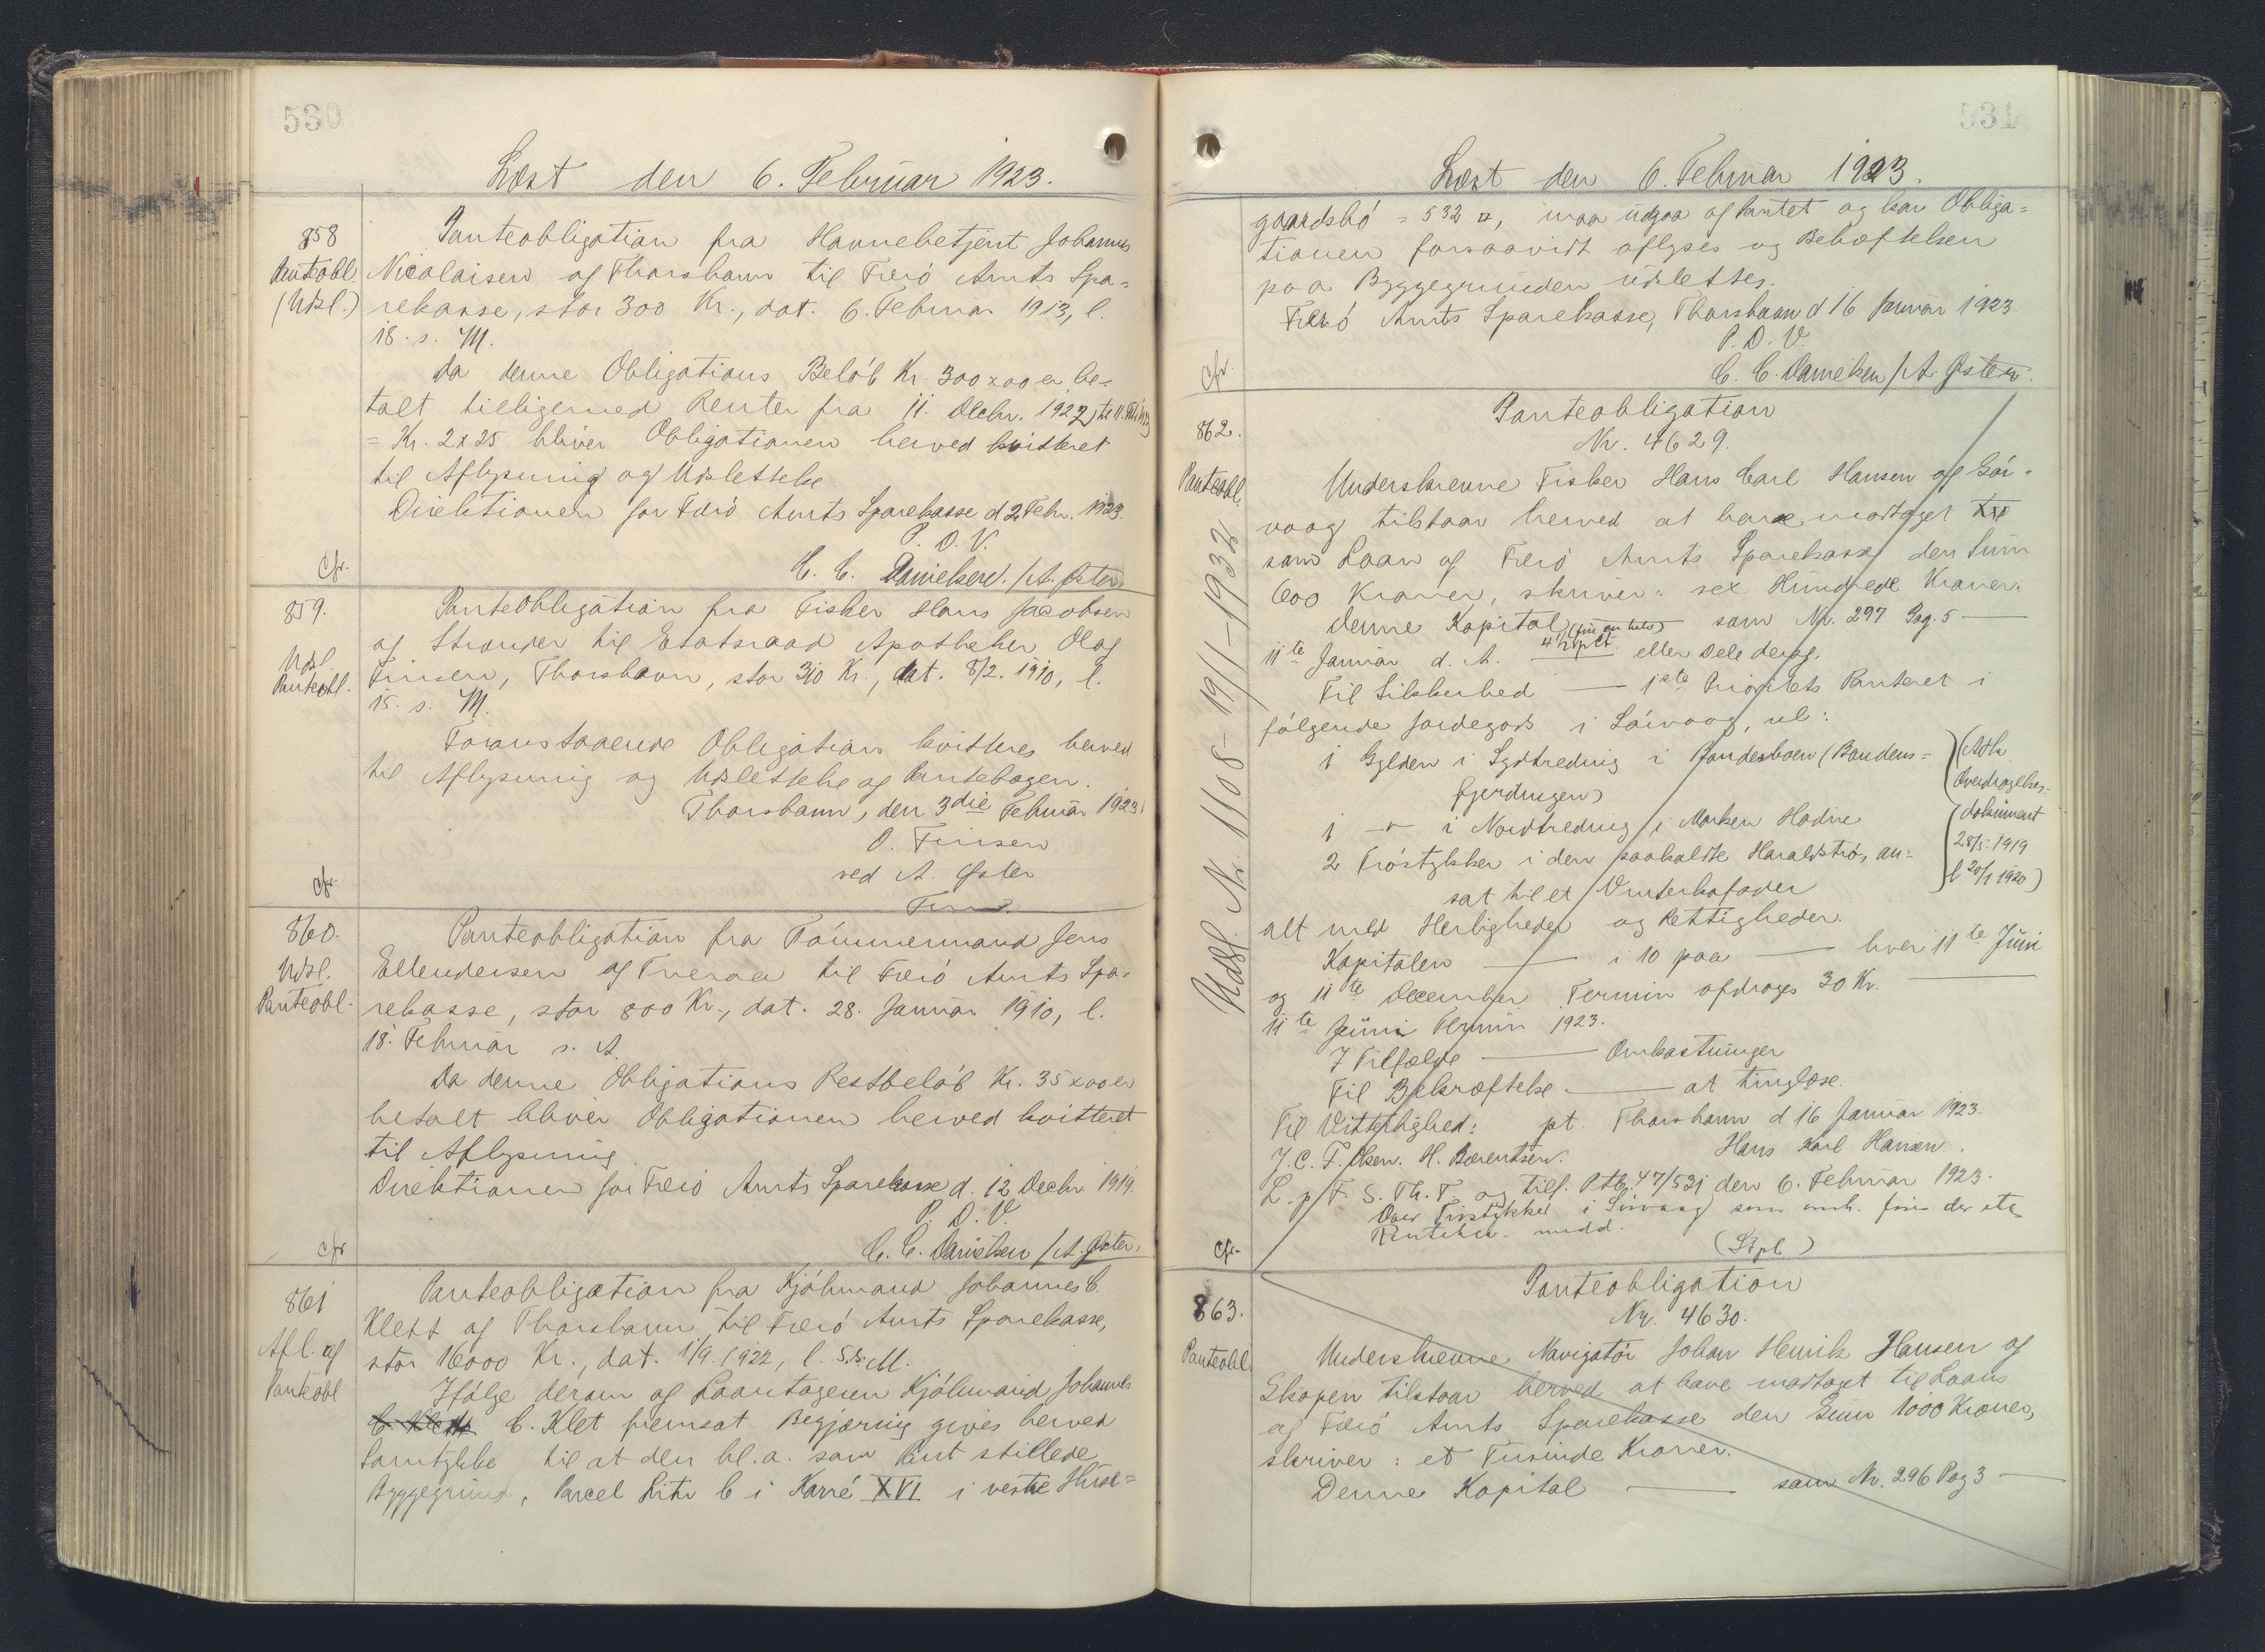 530
Læst den 6. Februar 1923.
858
Panteobl.
(Udsl.)
Panteobligation fra Havnebetjent Johannes
Nicolaisen af Thorshavn til Færö Amts Spa=
rekasse, stor 300 Kr., dat. 6. Februar 1913, l.
18. s. M.
Da denne Obligations Belöb Kr. 300x00 er be=
talt tilligemed Renter fra 11. Decbr. 1922 til 11.
= Kr. 2x25 bliver Obligationen herved kvitteret
til Aflysning og Udslettelse
Direktionen for Færö Amts Sparekasse d 2 Febr. 1923.
P. D. V.
C. C. Danielsen. / A. Öster
Cfr.
859.
Udsl.
Panteobl.
Panteobligation fra Fisker Hans Jacobsen
af Strander til Etatsraad Apotheker Olag
Finsen, Thorshavn, stor 310 Kr., dat. 8/2. 1910, l.
15. s. M.
Foranstaaende Obligation kvitteres herved
til Aflysning og Udslettelse af Pantebogen.
Thorshavn, den 3die Februar 1923.
O. Finsen
ved A. Öster
Cfr.
860.
Udsl.
Panteobl.
Panteobligation fra Tömmermand Jens
Ellendersen af Tveraa til Færö Amts Spa=
rekasse, stor 800 Kr., dat. 28. Januar 1910, l.
18. Februar s. A.
Da denne Obligations Restbelöb Kr. 35x00 er
betalt bliver Obligationen herved kvitteret
til Aflysning.
Direktionen for Færö Amts Sparekasse d. 12 Decbr. 1919.
P. D. V.
C. C. Danielsen / A. Öster.
Cfr
861
Afl. af
Panteobl
Panteobligation fra Kjöbmand Johannes C.
Klett af Thorshavn til Færö Amts Sparekasse,
stor 16000 Kr., dat. 1/9. 1922, l. 5. s. M.
Ifölge derom af Laantageren Kjöbmand Johannes
C. Klett C. Klet fremsat Begjæring gives herved
Samtykke til at den bl. a. som Pant stillede
Byggegrund, Parcel Litr C i Karré XVI i vestre Huse=
531
Læst den 6. Februar 1923.
gaardsbö = 532 □, maa udgaa af Pantet og kan Obliga=
tionen forsaavidt aflyses og Behæftelsen
paa Byggegrunden udslettes.
Færö Amts Sparekasse, Thorshavn d 16 Januar 1923
P. D. V.
C. C. Danielsen / A. Öster.
Cfr.
862.
Panteobl.
Udsl. Nr. 1108 - 19/1 - 1932
Panteobligation
Nr. 4629.
Underskrevne Fisker Hans Carl Hansen af Sör=
vaag tilstaar herved at have modtaget
som Laan af Færö Amts Sparekasse den Sum
600 Kroner, skriver: sex Hundrede Kroner.
Denne Kapital (fire en halv) som Nr. 297 Pag. 5
11te Januar d. A. 4 1/2 pCt. eller Dele deraf.
Til Sikkerhed 1ste Prioritets Panteret i
fölgende Jordegods i Sörvaag, nl:
1 Gylden i Sydtreding i Bandesboen (Bandens=
fjerdingen)
1 -"- i Nordtreding i Marken Hadne
2 Tröstykker i den saakaldte Haraldströ, an=
sat til et Vinterkofoder
(Adk.
Overdragelses-
dokument
28/5. 1919
l 20/1 1920)
alt med Herligheder og Rettigheder.
Kapitalen i 10 paa hver 11te Juni
og 11te December Termin afdrages 30 Kr.
11te Juni Termin 1923.
I Tilfælde Omkostninger
Til Bekræftelse at tinglæse.
Til Vitterlighed: pt. Thorshavn d 16 Januar 1923.
J. C. F. Olsen. H. Bærentsen. Hans Karl Hansen.
L. p. F. S. Th. T. og tilf. Ptb. 47/531 den 6. Februar 1923.
Over Tröstykket i Sörvaag som
(Stpl)
Cfr.
863.
Panteobl
Panteobligation
Nr. 4630.
Underskrevne Navigatör Johan Henrik Hansen af
Skopen tilstaar herved at have modtaget til Laans
af Færö Amts Sparekasse den Sum 1000 Kroner,
skriver: et Tusinde Kroner.
Denne Kapital som Nr. 296 Pag 3